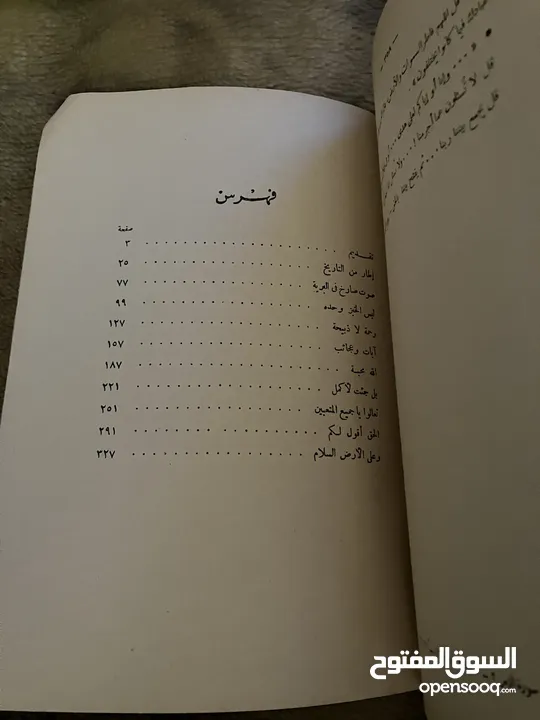 فهرس
صفحة
تقديم ٣
إطار من التاريخ ٢٥
صوت صارخ فى البرية ٧٧
ليس الخبز وحده ٩٩
رحمة لا ذبيحة ١٢٧
آيات وعجائب ١٥٧
الله محبة ١٨٧
بل جئت لأكمل ٢٢١
تعالوا يا جميع المتعبين ٢٥١
الحق أقول لكم ٢٩١
وعلى الأرض السلام ٣٢٧
السوق المفتوح
opensooq.com